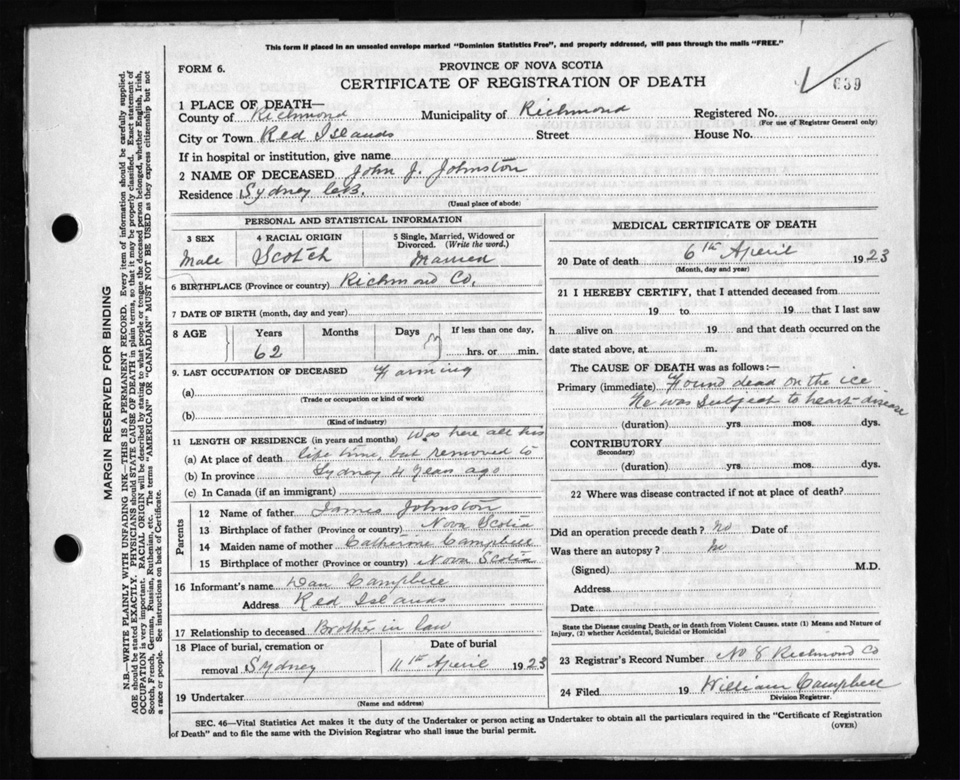 This form if placed in an unsealed envelope marked "Dominion Statistics Free", and properly addressed, will pass through the mails "FREE."
FORM 6.
PROVINCE OF NOVA SCOTIA
CERTIFICATE OF REGISTRATION OF DEATH
639
1 PLACE OF DEATH—
County of Richmond Municipality of Richmond Registered No.
(For use of Registrar General only)
City or Town Red Islands Street House No.
If in hospital or institution, give name
2 NAME OF DECEASED John J. Johnston
Residence Sydney C.B.
(Usual place of abode)
PERSONAL AND STATISTICAL INFORMATION
3 SEX 4 RACIAL ORIGIN 5 Single, Married, Widowed or Divorced. (Write the word.)
Male Scotch Married
6 BIRTHPLACE (Province or country) Richmond Co.
7 DATE OF BIRTH (month, day and year)
8 AGE Years Months Days If less than one day,
62 hrs. or min.
9. LAST OCCUPATION OF DECEASED Farming
(a)
(Trade or occupation or kind of work)
(b)
(Kind of industry)
11 LENGTH OF RESIDENCE (in years and months) Was here all his
(a) At place of death life time, but removed to
(b) In province Sydney 4 years ago
(c) In Canada (if an immigrant)
Parents
12 Name of father James Johnston
13 Birthplace of father (Province or country) Nova Scotia
14 Maiden name of mother Catherine Campbell
15 Birthplace of mother (Province or country) Nova Scotia
16 Informant's name Dan Campbell
Address Red Islands
17 Relationship to deceased Brother in law
18 Place of burial, cremation or removal Sydney Date of burial 11th April 1923
19 Undertaker
(Name and address)
MEDICAL CERTIFICATE OF DEATH
20 Date of death 6th April 1923
(Month, day and year)
21 I HEREBY CERTIFY, that I attended deceased from
19 to 19 that I last saw
h alive on 19 and that death occurred on the
date stated above, at m.
The CAUSE OF DEATH was as follows:—
Primary (immediate) Found dead on the ice
He was subject to heart disease
(duration) yrs. mos. dys.
CONTRIBUTORY
(Secondary)
(duration) yrs. mos. dys.
22 Where was disease contracted if not at place of death?
Did an operation precede death? no Date of
Was there an autopsy? no
(Signed) M.D.
Address
Date
State the Disease causing Death, or in death from Violent Causes, state (1) Means and Nature of
Injury, (2) whether Accidental, Suicidal or Homicidal
23 Registrar's Record Number No 8 Richmond Co
24 Filed 19 William Campbell
Division Registrar.
SEC. 46—Vital Statistics Act makes it the duty of the Undertaker or person acting as Undertaker to obtain all the particulars required in the "Certificate of Registration
of Death" and to file the same with the Division Registrar who shall issue the burial permit.
(OVER)
MARGIN RESERVED FOR BINDING
N.B.—WRITE PLAINLY WITH UNFADING INK—THIS IS A PERMANENT RECORD. Every item of information should be carefully supplied.
AGE should be stated EXACTLY. PHYSICIANS should STATE CAUSE OF DEATH in plain terms, so that it may be properly classified. Exact statement of
OCCUPATION is very important. RACIAL ORIGIN will be described by stating to what people or tongue the deceased person belonged, whether English, Irish,
Scotch, French, German, Russian, Ruthenian, etc. The terms "AMERICAN" OR "CANADIAN" MUST NOT BE USED as they express citizenship but not
a race or people. See instructions on back of Certificate.